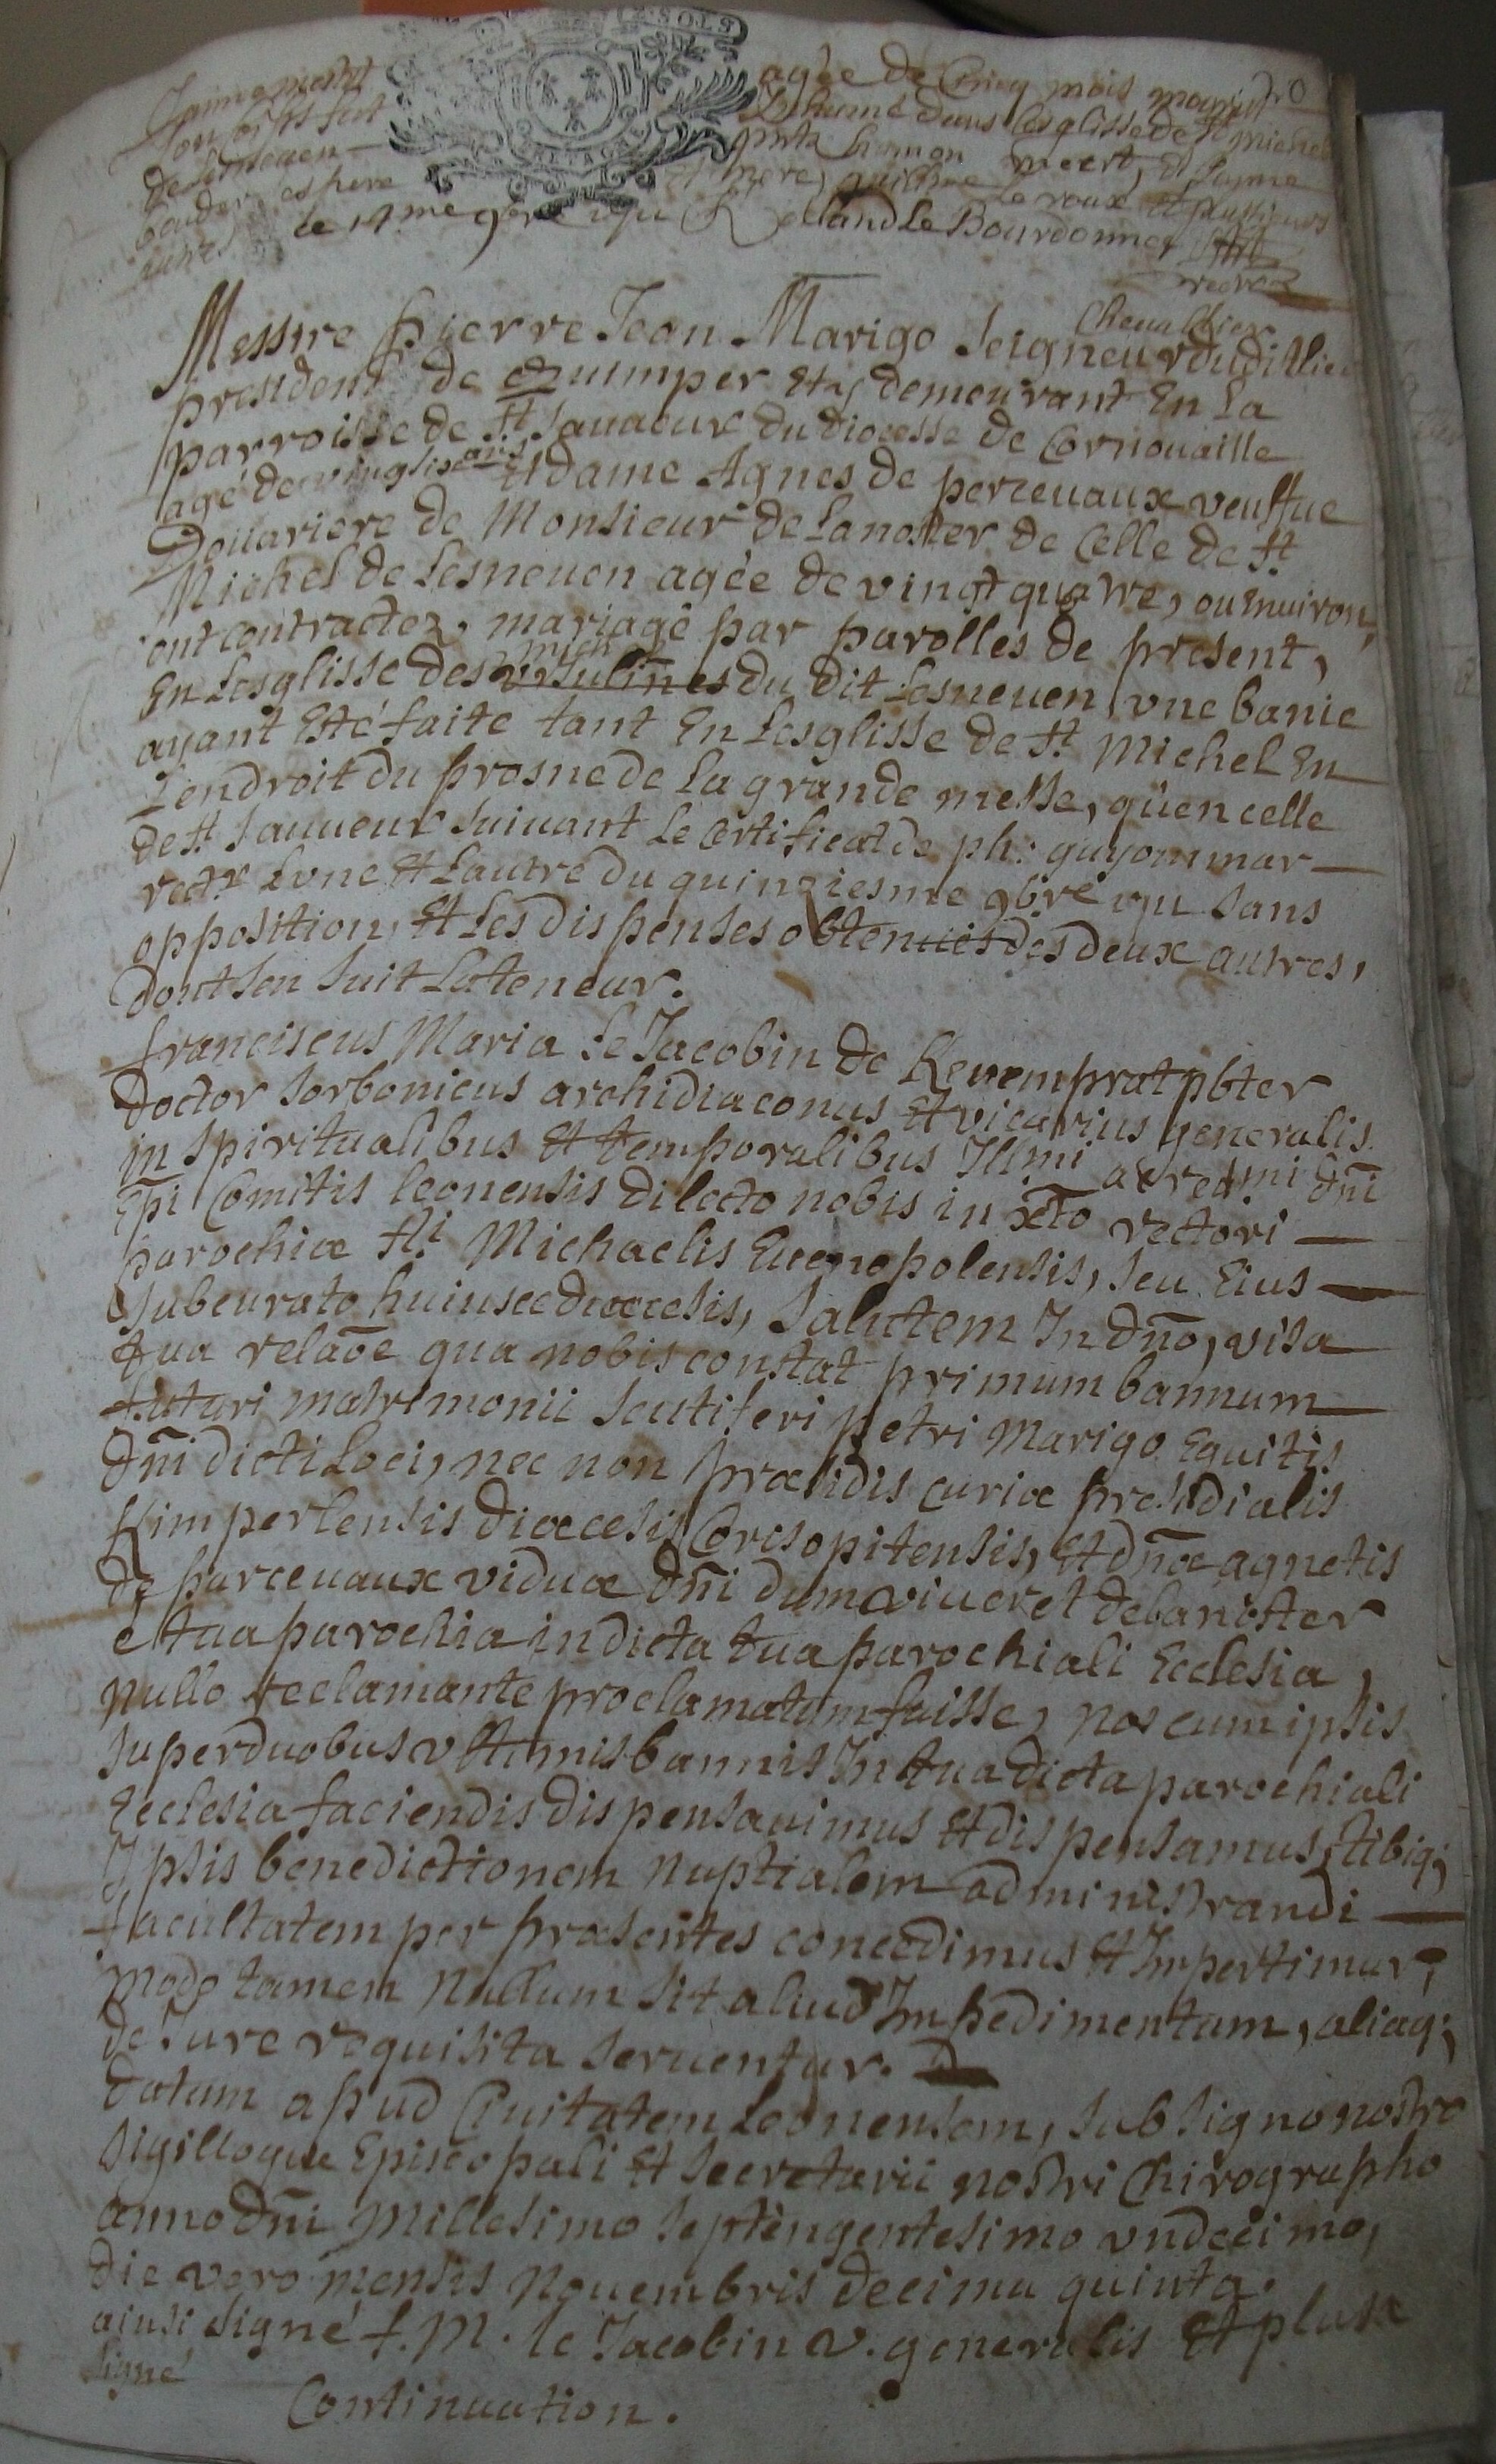 20
SOLS
BRETAGNE
agée de Cincq mois mourut
son corps fut Inhumé dans Lesglisse de st michel
de Lesneuen
pere
et mere, Guillme Le roux et plusieurs
autres
le 14me 9bre 1711 Rolland Le Bourdonnec
rectr
Chevallier
Messire pierre Jean Marigo Seigneur dudit lieu
president de quimper Etc, demeurant En La
parroisse de st Sauaeur du diocesse de Cornouaille
agé de vingt six ans Et dame Agnes de perceuaux veuffue
Doüariere de Monsieur de Lanoster de Celle de st
Michel de Lesneuen agée de vingt quatre, ou enuiron,
ont contractez, mariage par parolles de present,
En Lesglisse des vrsulines du dit Lesneuen, vne banie
ayant Esté faite tant En Lesglisse de st Michel En
Lendroit du prosne de La grande messe, qüen celle
de st Sauueur suiuant Le certificat de ph: guyommar
rectr Lvne Et Lautre du quinziesme 9bre 1711 sans
opposition, Et Les dispenses obtenües des deux autres,
dont sen suit La teneur.
franciscus Maria Le Jacobin de Keremprat pbter
doctor sorbonicus archidiaconus Et vicarius generalis
in spiritualibus Et temporalibus Illmi ac redmi dni
Epi Comitis leonensis dilecto nobis in xto rectori
parochiæ sti Michaelis Euenopolensis, seu Eius
subcurato huiusce diœcesis, salutem In dno, visa
tua relaõe qua nobis constat primum bannum
futuri matrimonii scutiferi petri Marigo Equitis
dni dicti Loci, nec non præsidis curiæ presidialis
Kimperlensis diœcesis Corisopitensis, Et dnæ agnetis
de parceuaux viduæ dni dum viueret de Lanoster
é tua parochia in dicta tua parochiali Ecclesia,
nullo reclamante proclamatum fuisse, nos cum ipsis
super duobus vltimis bannis In tua dicta parochiali
Ecclesia faciendis dispensauimus Et dispensamus, tibiq;
Ipsis benedictionem nuptialem administrandi
facultatem per præsentes concedimus Et Impertimur,
modo tamen nullum sit aliud Impedimentum, aliaq;
de Jure requisita seruentur.
datum apud Ciuitatem Leonensem, sub signo nostro
sigilloque Episcopali Et secretarii nostri Chirographo
anno dni millesimo septingentesimo vndecimo,
die vero mensis nouembris decima quinta.
ainsi signé f. M. le Jacobin v. generalis Et plus
signé
Continuation.